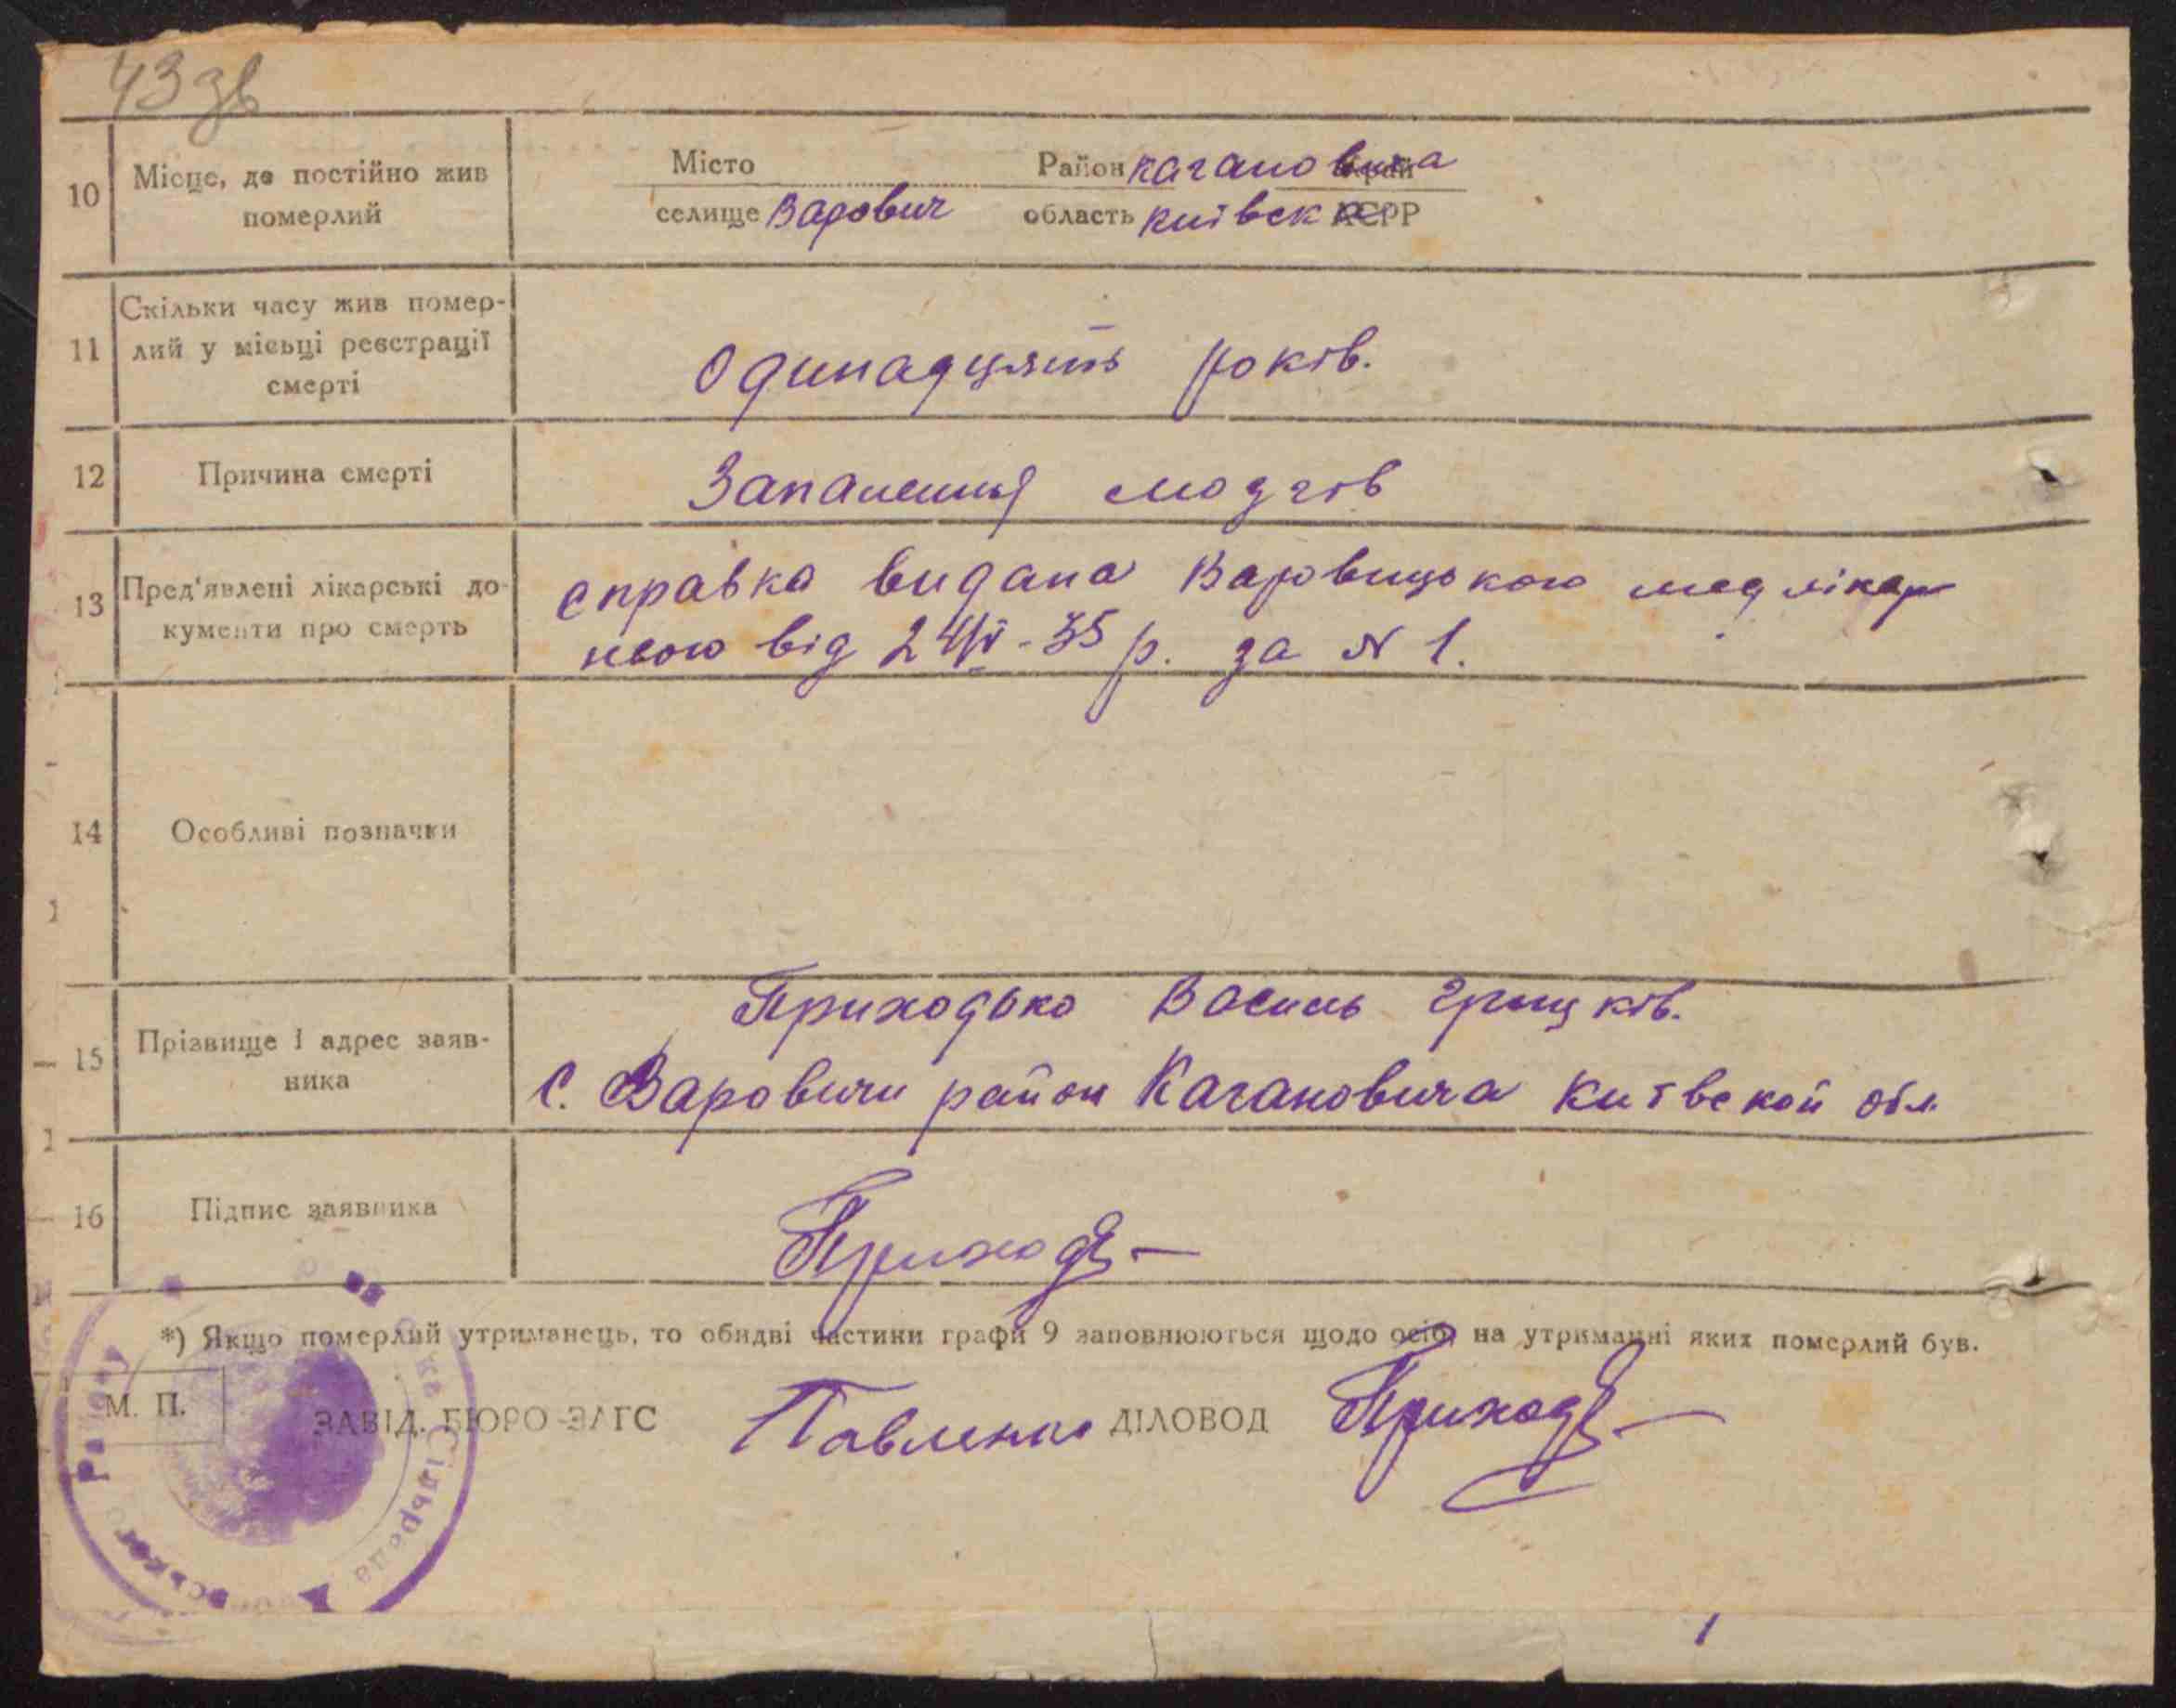 43 зв
10 Місце, де постійно жив
померлий
Місто Район Кагановича край
селище Варович область Київск АСРР
11 Скільки часу жив помер-
лий у місьці реєстрації
смерті
Одинадцять років.
12 Причина смерті
Запалення мозгів
13 Пред'явлені лікарські до-
кументи про смерть
справка видана Варовицькою мед лікар
нею від 24/ -35 р. за N 1.
14 Особливі позначки
15 Прізвище і адрес заяв-
ника
Приходько Василь Грицків.
с. Варовичи район Кагановича Київской обл
16 Підпис заявника
Приход
*) Якщо померлий утриманець, то обидві частини графи 9 заповнюються щодо осіб, на утриманні яких померлий був.
М. П.
ЗАВІД. БЮРО ЗАГС Павленко ДІЛОВОД Приход
Району
Сільрада
1